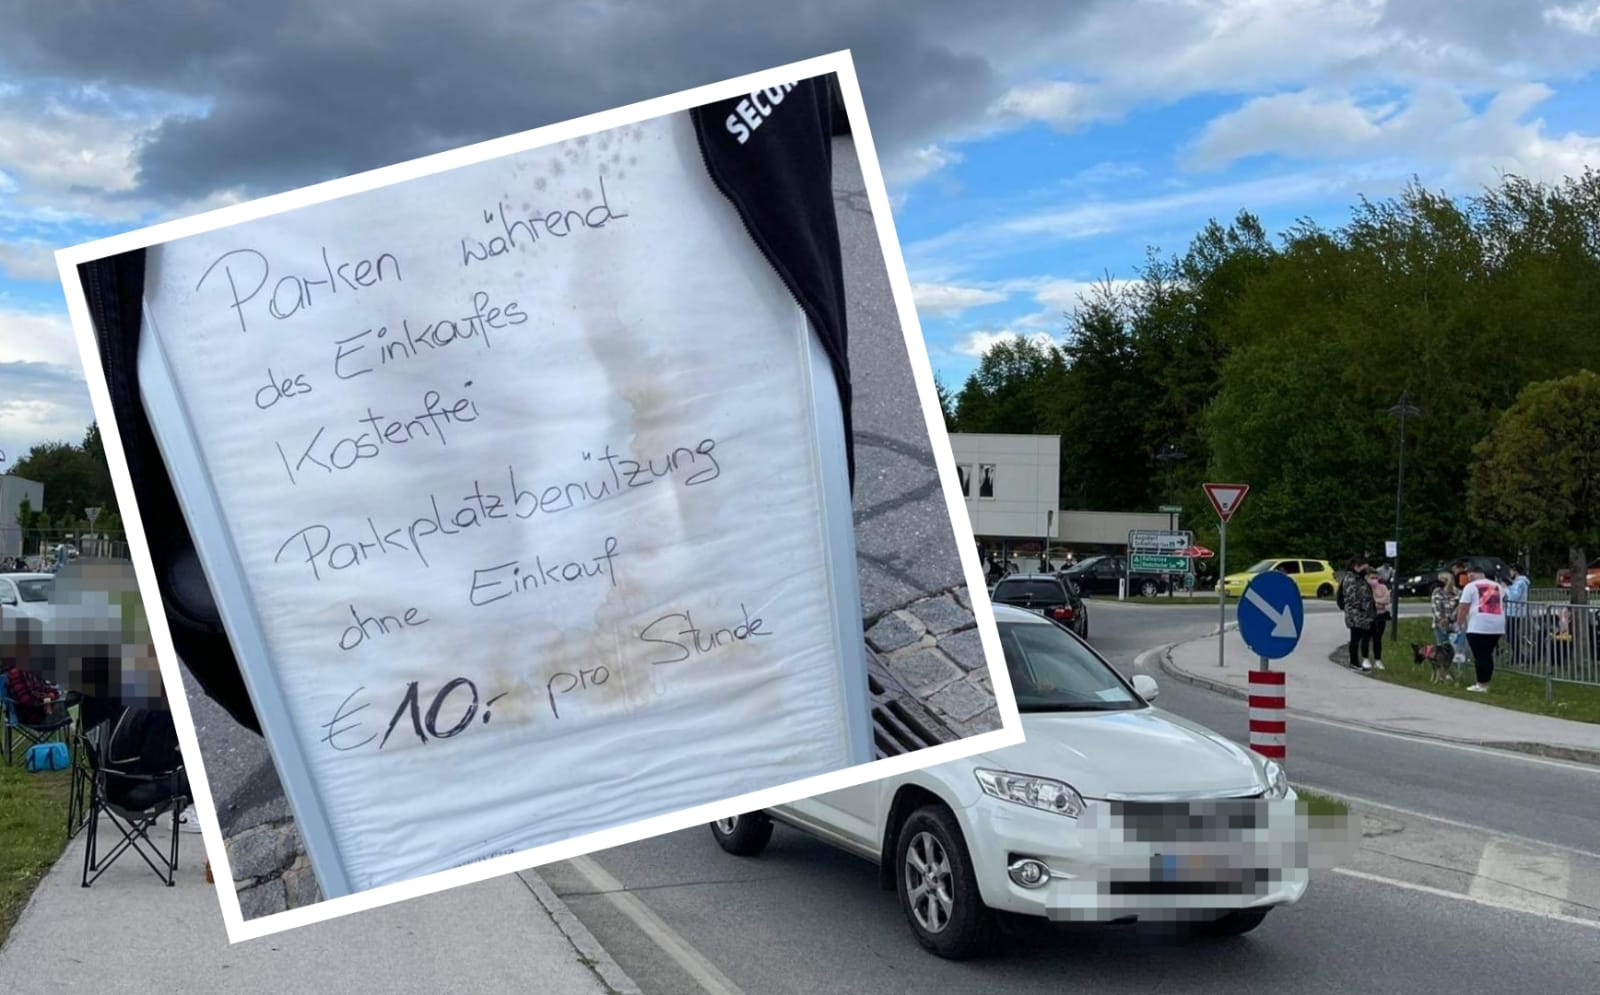 SECUR
Parken während
des Einkaufes
Kostenfrei
Parkplatzbenützung
ohne Einkauf
€10.- pro Stunde